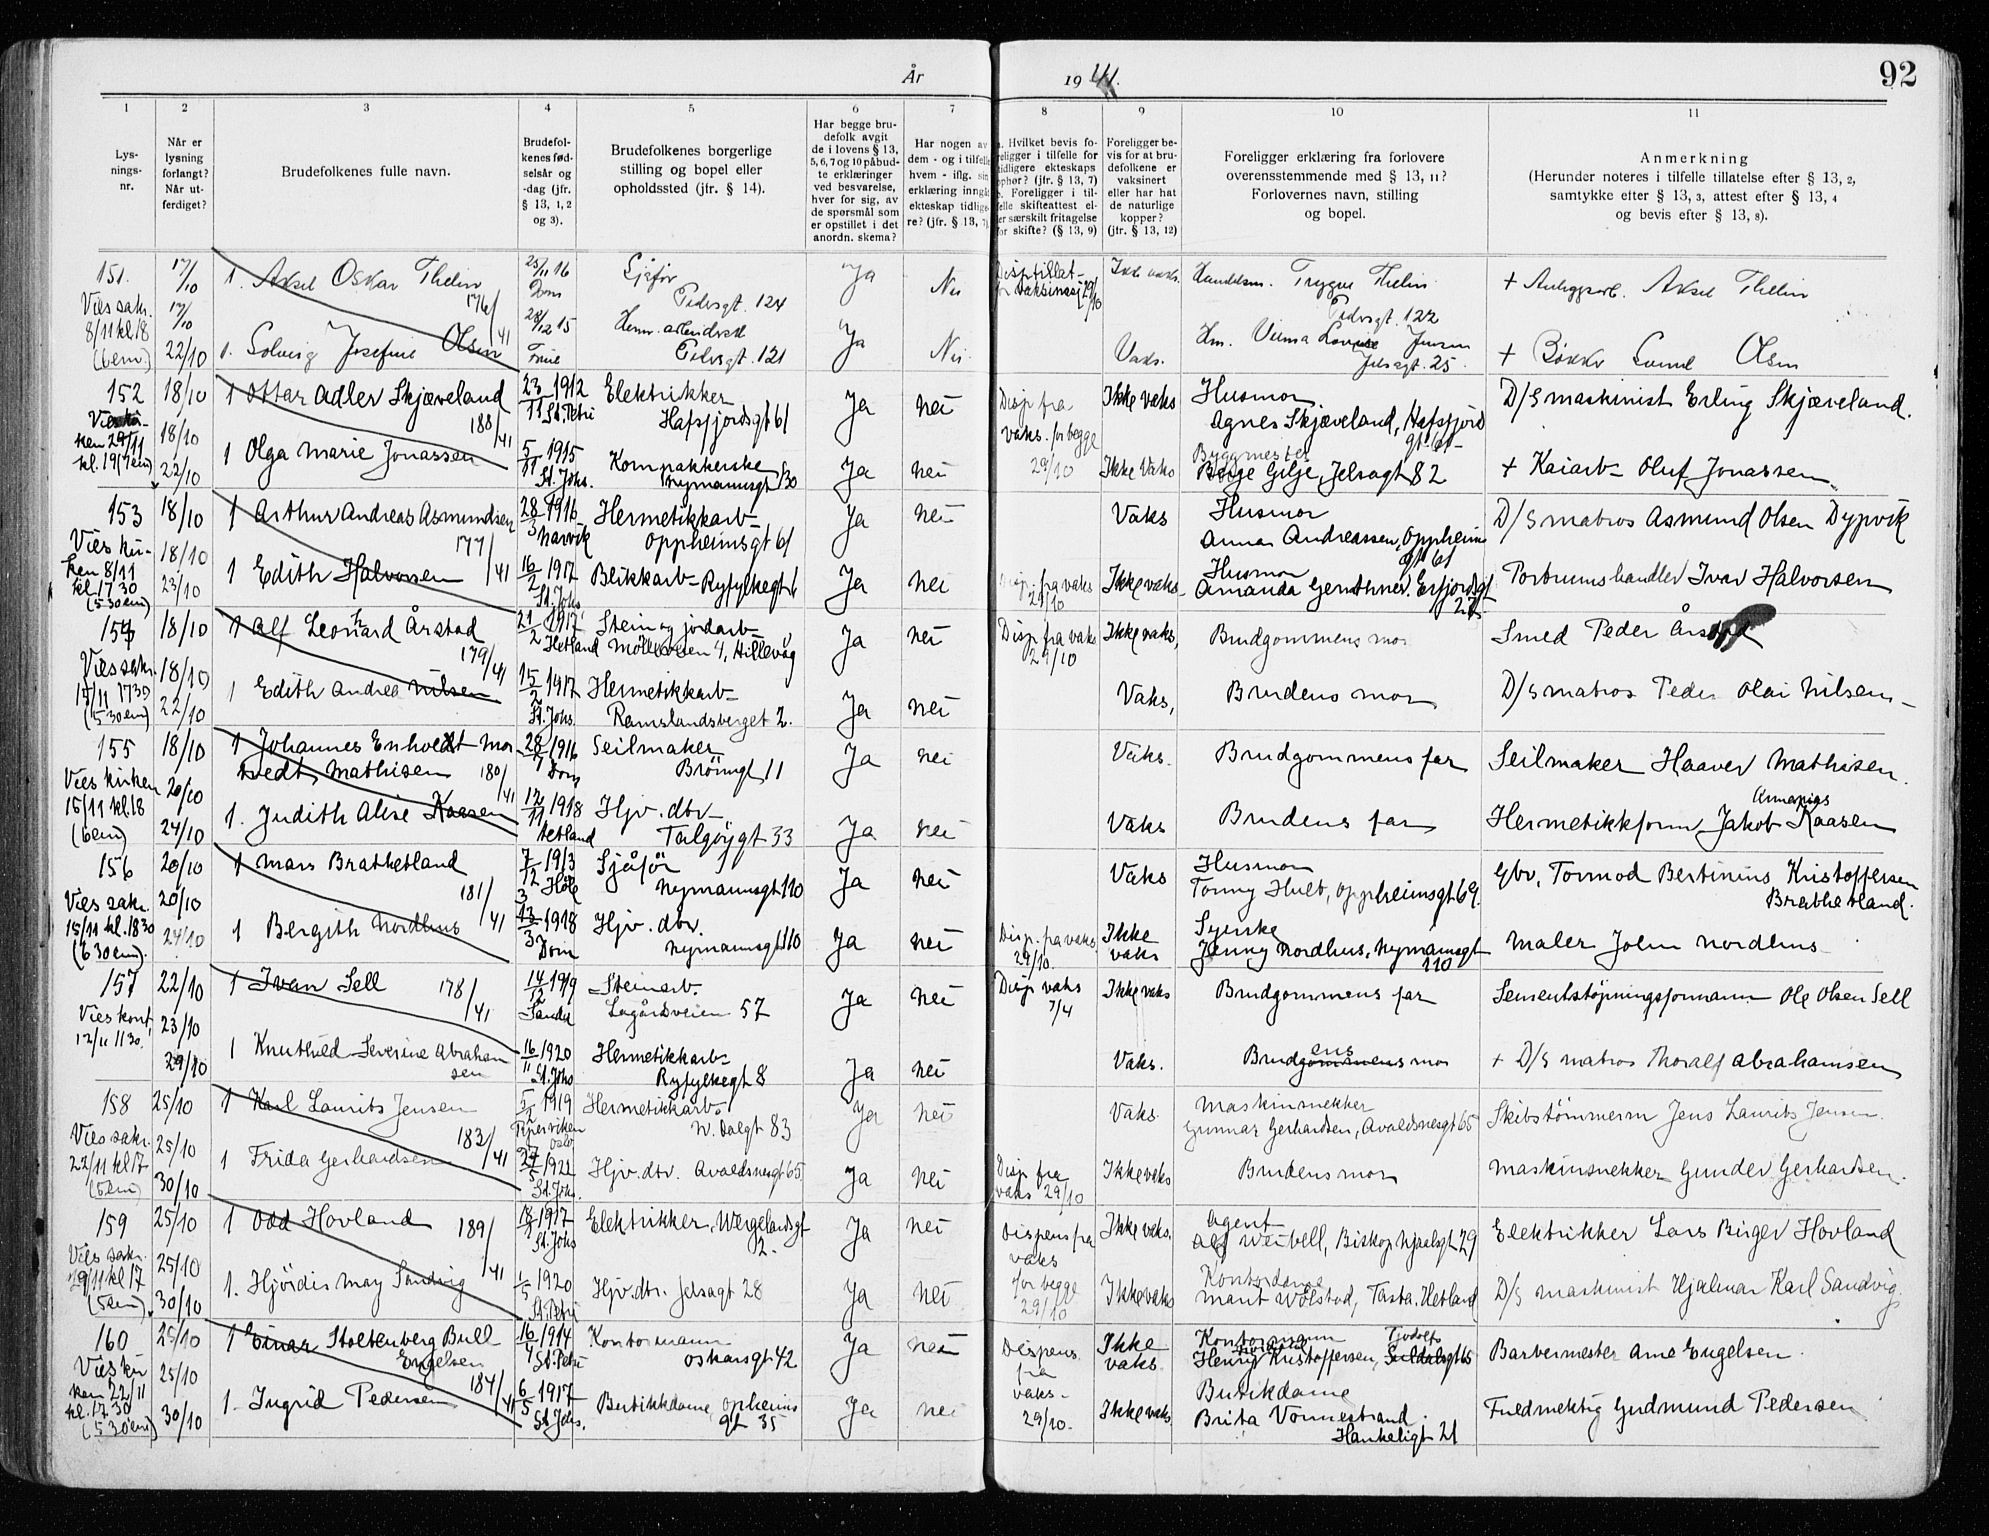 År
1941.
92
1
2
3
4
5
6
7
8
9
10
11
Lys-
nings-
nr.
Når er
lysning
forlangt?
Når ut-
ferdiget?
Brudefolkenes fulle navn.
Brudefol-
kenes fød-
selsår og
-dag (jfr.
§ 13, 1, 2
og 3).
Brudefolkenes borgerlige
stilling og bopel eller
opholdssted (jfr. § 14).
Har begge bru-
defolk avgit
de i lovens § 13,
5, 6, 7 og 10 påbud-
te erklæringer
ved besvarelse,
hver for sig, av
de spørsmål som
er opstillet i det
anordn. skema?
Har nogen av
dem - og i tilfelle
hvem - iflg. sin
erklæring inngåt
ekteskap tidlige-
re? (jfr. § 13, 7)
a. Hvilket bevis fo-
religger i tilfelle for
tidligere ekteskaps
ophør? (jfr. § 13, 7)
b. Foreligger i til-
felle skifteattest el-
ler særskilt fritagelse
for skifte? (§ 13, 9)
Foreligger be-
vis for at bru-
defolkene er
vaksinert
eller har hat
de naturlige
kopper?
(jfr. § 13, 12)
Foreligger erklæring fra forlovere
overensstemmende med § 13, 11?
Forlovernes navn, stilling
og bopel.
Anmerkning
(Herunder noteres i tilfelle tillatelse efter § 13, 2,
samtykke efter § 13, 3, attest efter § 13, 4
og bevis efter § 13, 8).
151. 17/10 1. Aksel Oskar Thelin 176/41 25/11 16 Dom Sjåfør Pedersgt. 124 Ja Nei Disp. tillat- 29/10 Ikke vaks. Trygve Thelin Pedersgt. 122 + Anleggsarb. Aksel Thelin
Vies sakr. 8/11 kl. 18 (6em) 17/10 22/10 1. Solveig Josefine Olsen 28/12 15 Frue Pedersgt. 121 Ja Nei Vaks. Jensen Jelsagt. 25. + Bøkker Olsen
152 18/10 1 Ottar Adler Skjæveland 188/41 23/11 1912 St. Petri Elektrikker Hafsfjordsgt 61 Ja nei Disp fra vaks. for begge 29/10 Ikke vaks Husmor Agnes Skjæveland, Hafsfjord gt. 61- D/S maskinist Erling Skjæveland.
Vies kir- ken 29/11 kl. 19 (7em) 18/10 22/10 1 Olga Marie Jonassen 5/11 1915 St. Johs. Kompakkerske Nymannsgt 130 Ja nei Ikke Vaks Byggmester Børge Gilje, Jelsagt 82 + Kaiarb- Oluf Jonassen
153 18/10 1 Arthur Andreas Asmundsen 177/41 28/3 1916 Narvik Hermetikkarb- Oppheimsgt 61 Ja nei Vaks Husmor Anna Andreassen, Oppheims gt 61 D/S matros Asmund Olsen Dypvik
Vies kir- ken 8/11 kl. 17 30 (5 30 em) 18/10 23/10 1 Edith Halvorsen 16/2 1917 St. Johs. Blikkarb- Ryfylkegt 1 Ja nei Disp. fra vaks 29/10 Ikke vaks- Husmor Amanda Gernthner, Erfjordsgt Ivar Halvorsen
154 18/10 1 Alf Leonhard Årstad 179/41 21/2 1917 Hetland Stein og jordarb- Mølleveien 4, Hillevåg Ja nei Disp fra vaks 29/10 Ikke vaks, Brudgommens mor Smed Peder Årstad
Vies sakr. 15/11 17 30 (5 30 em) 18/10 22/10 1 Edith Andrea Nilsen 15/2 1917 St. Johs. Hermetikkarb- Ramslandsberget 2. Ja nei Vaks, Brudens mor D/S matros Peder Olai Nilsen-
155 18/10 1 Johannes Enholdt Mor tvedt Mathisen 180/41 28/7 1916 Dom Seilmaker Brønngt 11 Ja nei Vaks. Brudgommens far Seilmaker Haaver Mathisen.
Vies kirken 15/11 kl. 18 (6em) 20/10 24/10 1. Judith Alise Kaasen 12/11 1918 Hetland Hjv. dtr- Talgøygt 33 Ja nei Vaks Brudens far Hermetikkform Jakob Ananias Kaasen
156 20/10 1 Mars Brathetland 181/41 7/12 1913 Høle Sjåfør Nymannsgt 110 Ja nei Vaks Husmor Tonny Hult, Oppheimsgt 69. Gbr, Tormod Bertinius Kristoffersen Brathetland.
Vies sakr. 15/11 kl. 18 30 (6 30 em). 20/10 24/10 1 Bergith Nordhus 13/3 1918 Dom Hjv. dtr. Nymannsgt 110 Ja nei Disp. fra vaks. 29/10. Ikke vaks Syerske Jenny Nordhus, Nymannsgt 110 Maler John Nordhus
157 22/10 1 Ivan Sell 178/41 14/12 1919 Steinarb- Lagårdsveien 57 Ja nei Disp vaks 7/4 Ikke vaks Brudgommens far Sementstøpningsformann Ole Olsen Sell
Vies kont, 12/11 11 30. 23/10 29/10 1 Knuthild Severine Abraham sen 16/11 1920 St. Johs Hermetikkarb- Ryfylkegt 8 Ja nei Vaks. Brudens mor + D/S matros Thoralf Abrahamsen
158 25/10 1 Karl Laurits Jensen 183/41 1919 Hermetikkarb. N. Dalgt 83 Ja nei Vaks. Maskinsnekker Gunnar Gerhardsen, Avaldsnesgt 65 Skibstømmerm Jens Laurits Jensen.
Vies sakr. 22/11 kl. 17 (5em) 25/10 30/10 1 Frida Gerhardsen St. Johs. Hjv. dtr. Avaldsnesgt 65 Ja nei Disp fra vaks 29/10 Ikke vaks Brudens mor Maskinsnekker Gunder Gerhardsen.
159 25/10 1 Odd Hovland 189/41 1917 St. Johs Elektrikker, Wergelandsgt 2. Ja nei Dispens fra vaks for begge 29/10 Ikke vaks. Agent Biskop Njaalsgt 29 Elektrikker Lars Birger Hovland
Vies sakr. 29/11 kl 17 (5em) 25/10 30/10 1. Hjørdis May Sandvig 1/5 1920 St. Petri Hjv. dtr. Jelsagt 28 Ja nei Ikke vaks Kontordame Marit Wølstad, Tasta, Hetland D/S maskinist Hjalmar Karl Sandvig.
160 25/10 1 Einar Stoltenberg Bull Engelsen 184/41 16/4 1914 St. Petri Kontormann Oskarsgt 42 Ja nei Dispens. fra vaks- 29/10. Ikke vaks. Kontormann Henry Kristoffersen, Tjodolfs Barbermester Arne Engelsen.
Vies kir ken 22/11 kl. 17 30 (5 30 em) 25/10 30/10 1- Ingrid Pedersen 6/5 1917 St. Johs. Butikkdame, Opheims gt 35 Ja nei Ikke vaks Butikdame Brita Vonnestrand. Hankeligt 21 Fuldmektig Gudmund Pedersen